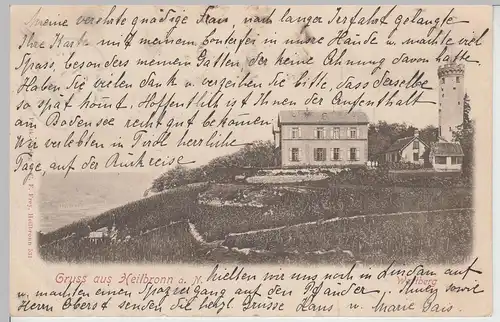 Meine verehrte gnädige Frau, nach langer Irrfahrt gelangte
Ihre Karte mit meinem Conterfei in unsre Hände u. machte viel
Spass, besonders meinem Gatten, der keine Ahnung davon hatte.
Haben Sie vielen Dank u. verzeihen Sie bitte, dass derselbe
so spät kömt. Hoffentlich ist Ihnen der Aufenthalt
am Bodensee recht gut bekomen.
Wir verlebten in Tirol herrliche
Tage, auf der Rückreise
hielten wir uns noch in Lindau auf
u. machten einen Spaziergang auf den Pfänder. Ihnen sowie
Herrn Oberst senden die herzl. Grüsse Hans u. Marie
Gruss aus Heilbronn a. N.
Wartberg
Heilbronn